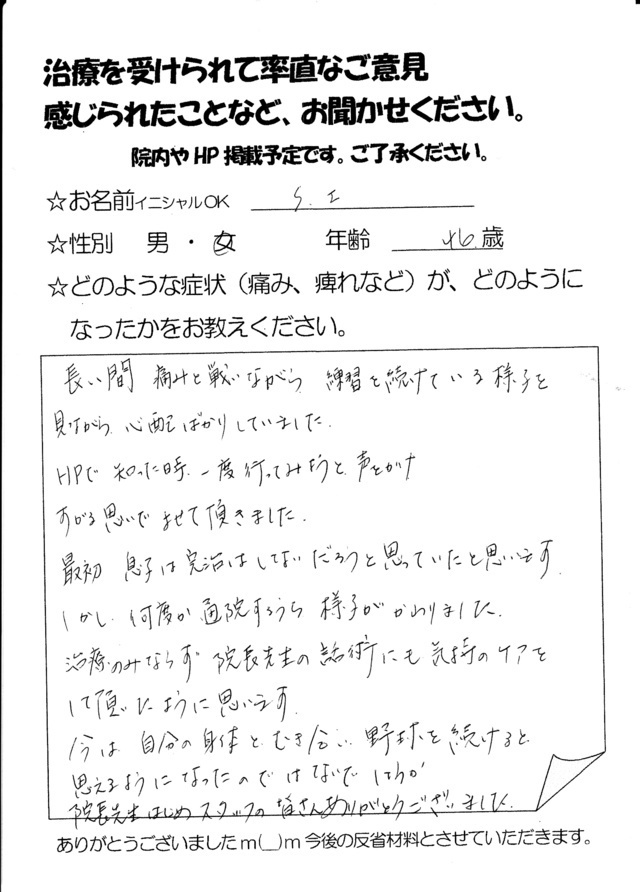 治療を受けられて率直なご意見
感じられたことなど、お聞かせください。
院内やHP掲載予定です。ご了承ください。
☆お名前イニシャルOK S.I
☆性別 男・女 年齢 46歳
☆どのような症状（痛み、痺れなど）が、どのように
なったかをお教えください。
長い間 痛みと戦いながら 練習を続けている様子を
見ながら 心配ばかりしていました.
HPで 知った時. 一度行ってみようと 声をかけ
すがる思いで よせて頂きました.
最初 息子は完治はしないだろうと思っていたと思います.
しかし. 何度か通院するうち 様子がかわりました.
治療のみならず 院長先生の話術にも 気持のケアを
して頂いたように思います.
今は 自分の身体と むき合い 野球を続けると
思えるようになったのではないでしょうか
院長先生はじめスタッフの皆さんありがとうございました.
ありがとうございましたm(__)m今後の反省材料とさせていただきます。